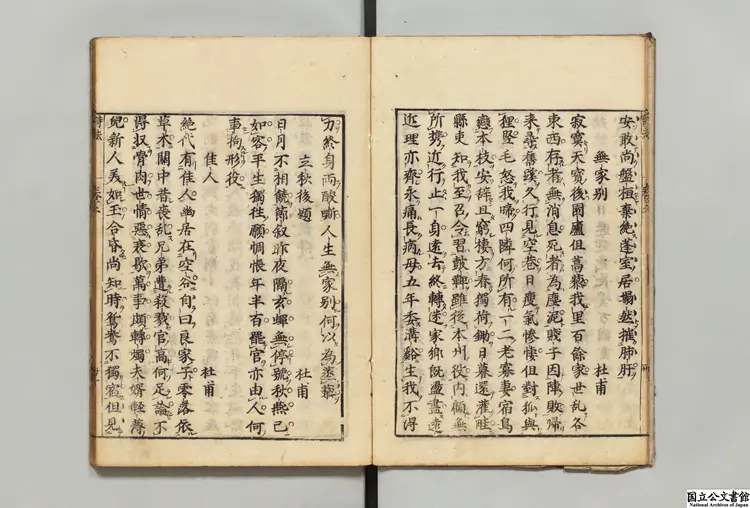 安敢尚盤桓棄絶蓬室居塌然摧肺肝
無家別 杜甫
寂寞天寶後園廬但蒿藜我里百餘家世亂各
東西存者無消息死者為塵泥賤子因陣敗歸
来尋舊蹊久行見空巷日瘦氣惨悽但對狐與
狸竪毛怒我啼四隣何所有一二老寡妻宿鳥
戀本枝安辞且窮棲方春獨荷鋤日暮還灌畦
縣吏知我至召令習鼓鞞雖從本州役内顧無
所携近行止一身遠去終轉迷家郷既盪盡遠
近理亦齊永痛長病母五年委溝谿生我不得
力終身兩酸嘶人生無家別何以為蒸藜
立秋後題 杜甫
日月不相饒節叙昨夜隔玄蟬無停號秋燕已
如客平生獨往願惆悵年半百罷官亦由人何
事拘形役
佳人 杜甫
絶代有佳人幽居在空谷自曰良家子零落依
草木關中昔喪亂兄弟遭殺戮官高何足論不
得収骨肉世情惡衰歇萬事轉燭夫婿輕薄
兒新人美如玉合昏尚知時鴛鴦不獨宿但見
国立公文書館
National Archives of Japan